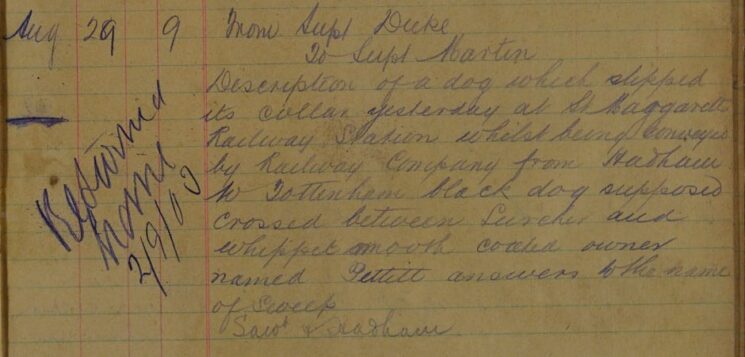 Aug 29 9 From Supt Duke
To Supt Martin
Description of a dog which slipped
its collar yesterday at St Maggarett
Railway Station whilst being conveyed
by Railway Company from Hadham
to Tottenham black dog supposed
crossed between Lurcher and
whippet smooth coated owner
named Pettitt answers to the name
of Sweep
Hadham
Returned
home
2/9/03